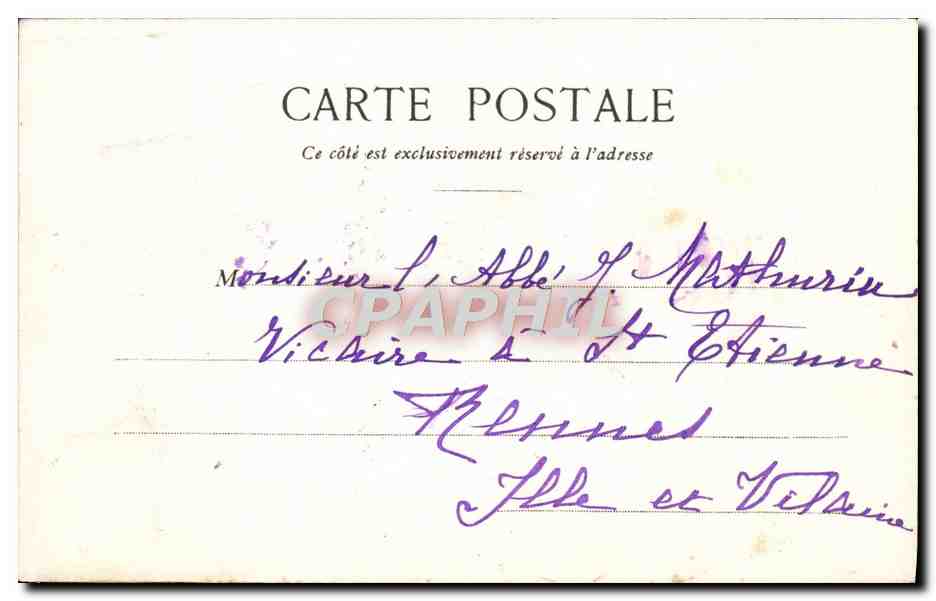 CARTE POSTALE
Ce côté est exclusivement réservé à l'adresse
Monsieur l'Abbé J. Mathurin
CPAPHIL
Vicaire à St Etienne
Rennes
Ille et Vilaine